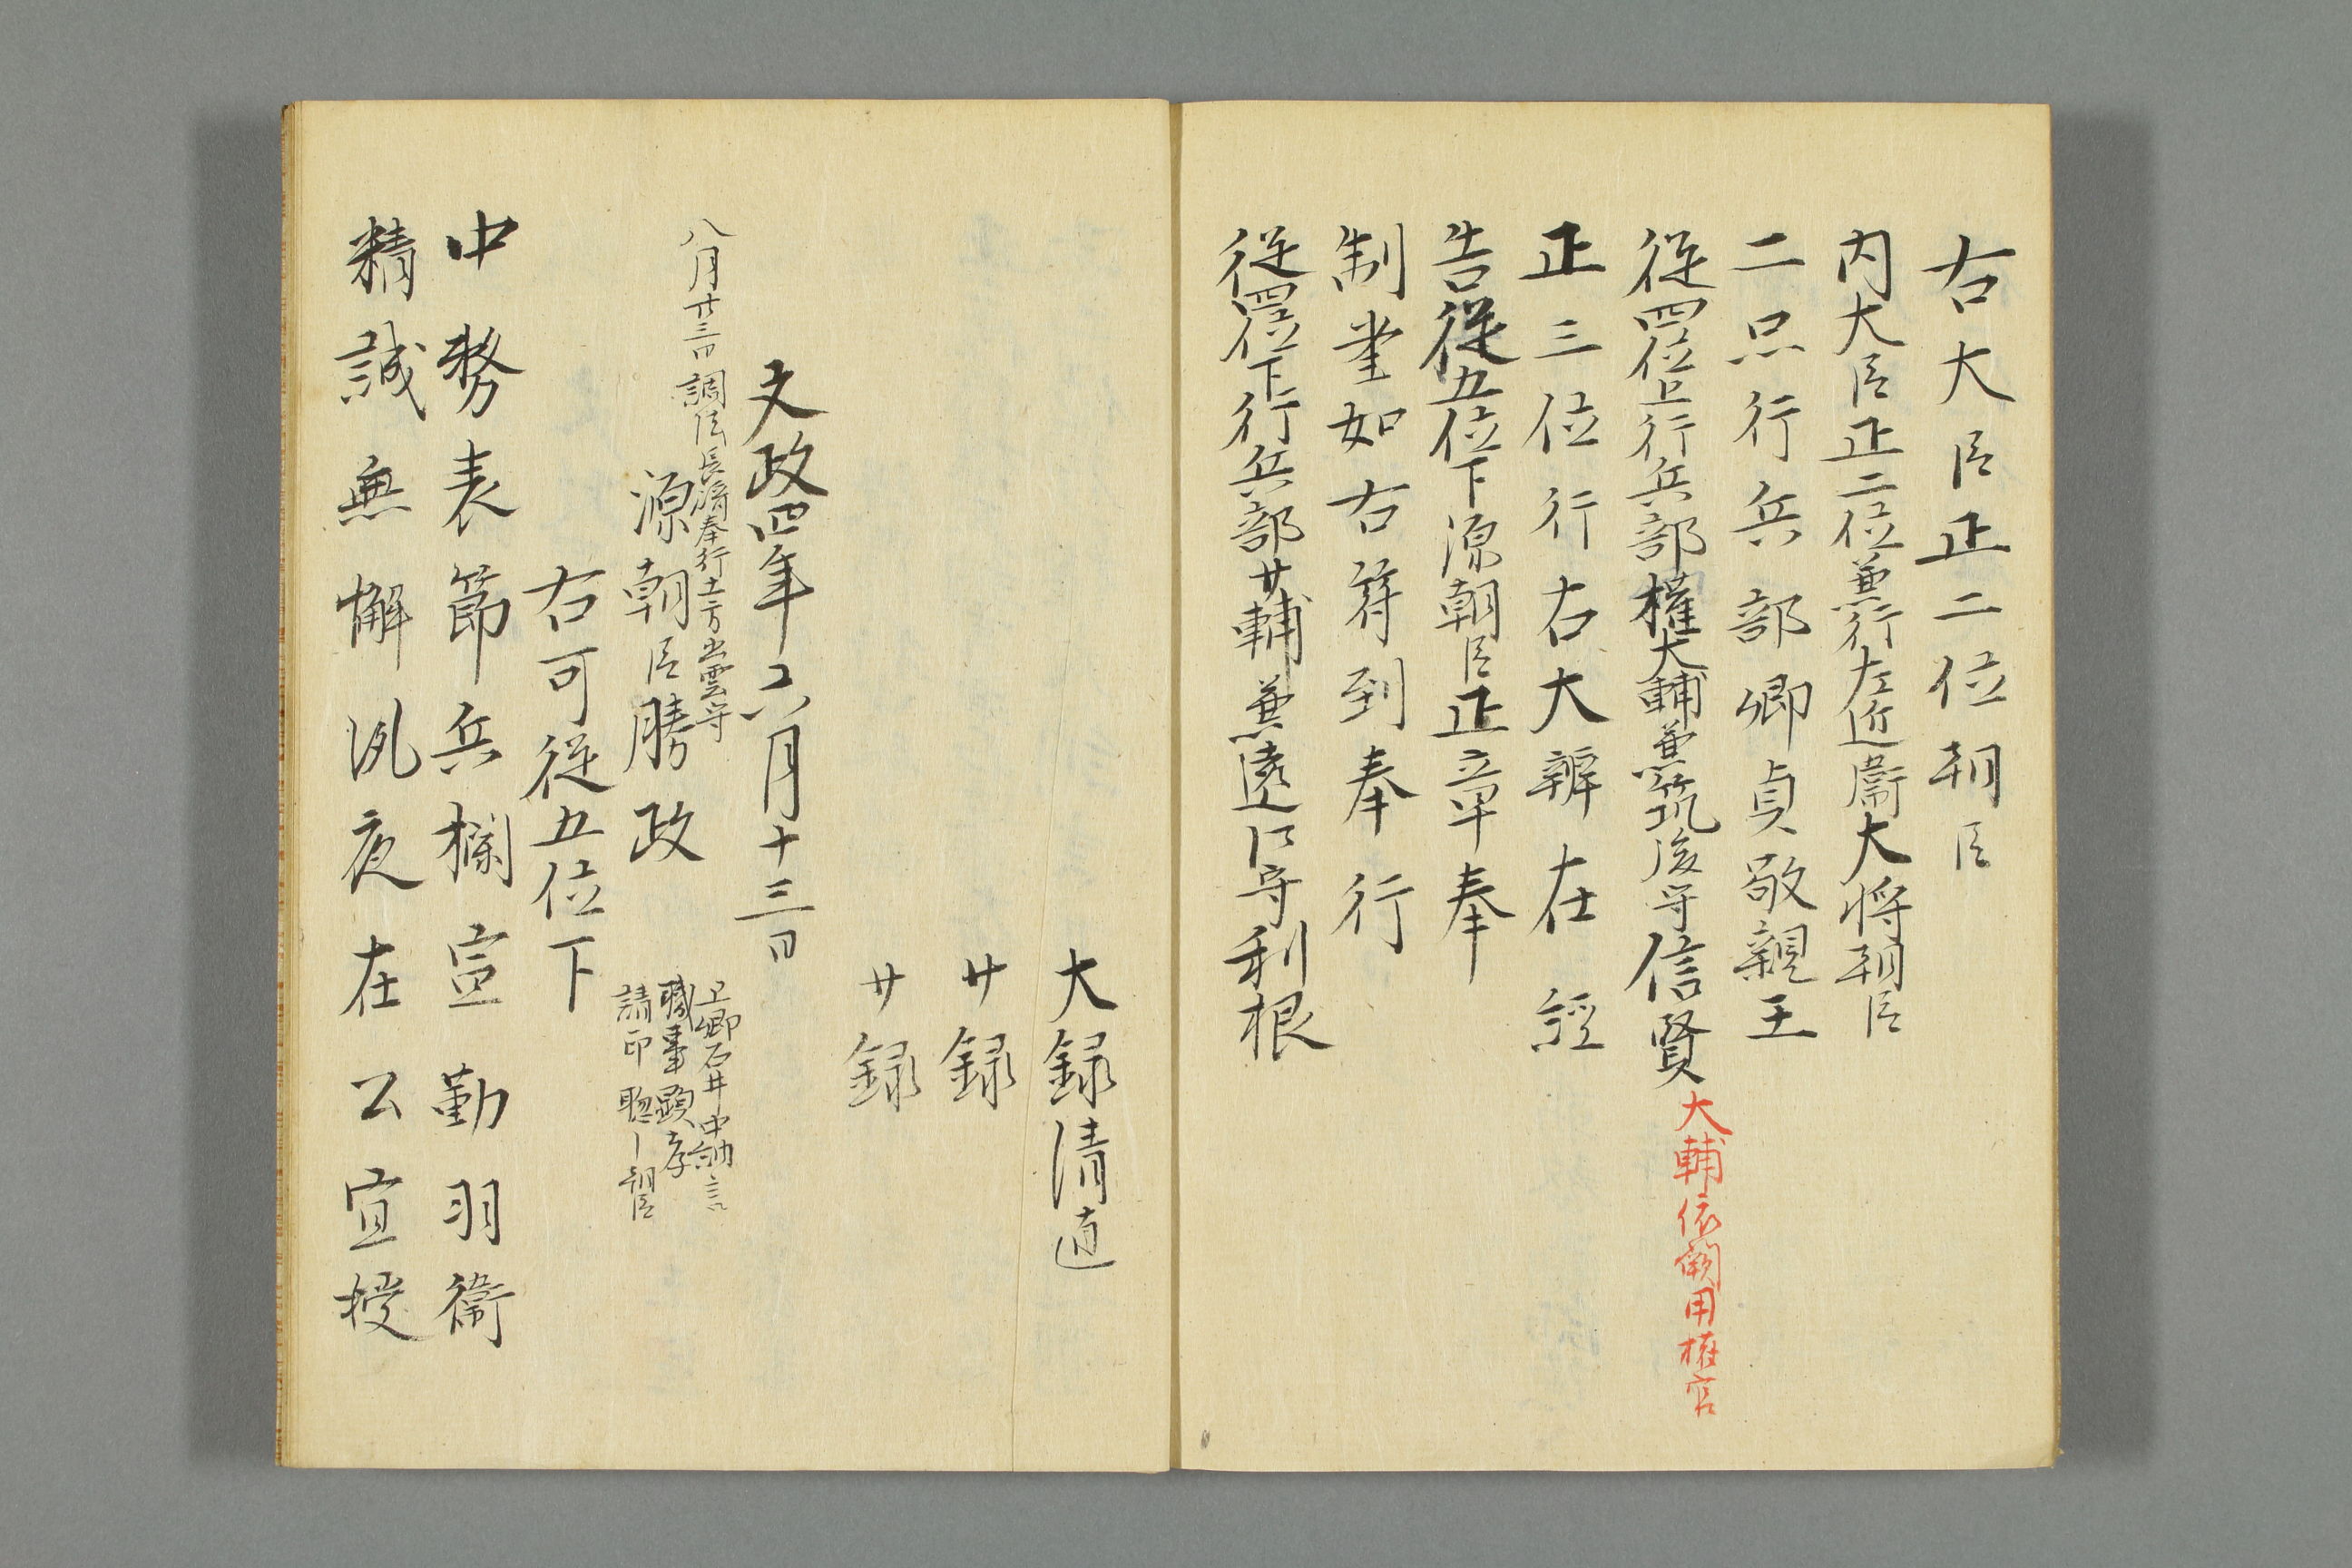 右大臣正二位朝臣
内大臣正二位兼行左近衛大将朝臣
二品行兵部卿貞敬親王
従四位上行兵部権大輔兼筑後守信賢
大輔依闕用権官
正三位行右大辨在経
告従五位下源朝臣正章奉
制書如右符到奉行
従四位下行兵部少輔兼遠江守利根
大録清直
少録
少録
文政四年六月十三日
八月廿三日調伝長済奉行土方出雲守
源朝臣勝政
上卿石井中納言
職事顕孝
請印聡ー朝臣
右可従五位下
中務表節兵欄宣勤羽衛
精誠無懈夙夜在公宜授